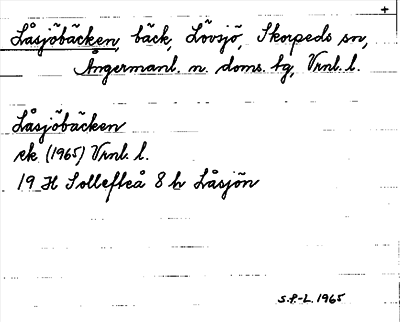 +
Låsjöbäcken, bäck, Lövsjö, Skorpeds sn,
Ångermanl. n. doms. tg, Vrnl. l.
Låsjöbäcken
ek. (1965) Vrnl. l.
19 H Sollefteå 8 h Låsjön
S.P.-L. 1965